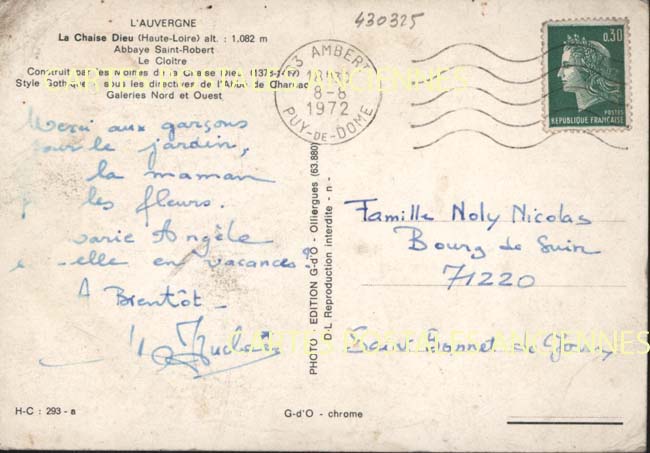 L'AUVERGNE
La Chaise Dieu (Haute-Loire) alt. : 1.082 m
Abbaye Saint-Robert
Le Cloître
Construit par les Moines de la Chaise Dieu
Style Gothique sous les directives de l'Abbé de Chanac
Galeries Nord et Ouest
CARTES POSTALES ANCIENNES
430325
63 AMBERT
8-8
1972
PUY-DE-DOME
0,30
POSTES
REPUBLIQUE FRANÇAISE
Merci aux garçons
pour le jardin,
la maman
les fleurs.
Angèle
elle en vacances ?
A Bientôt
PHOTO - EDITION G-d'O - Olliergues (63.880)
D-L Reproduction interdite - n -
Famille Noly Nicolas
Bourg de Suin
71220
Saint Bonnet de Joux
CARTES POSTALES ANCIENNES
H-C : 293 - a
G-d'O - chrome